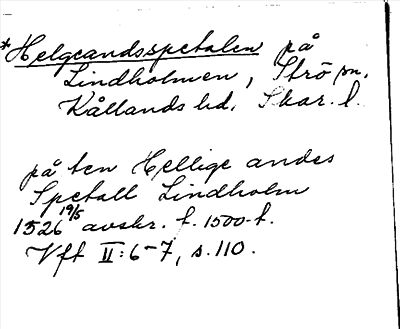 *Helgeandsspetalen på
Lindholmen, Strö sn,
Kållands hd, Skar. l.
på ten Hellige andes
Spetall Lindholm
1526 19/5 avskr. f. 1500-t.
Vft II:6-7, s. 110.